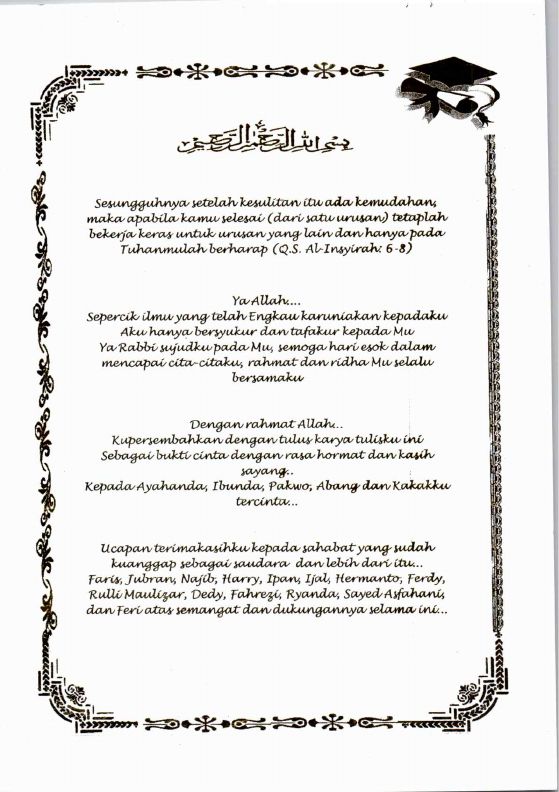 بسم الله الرحمن الرحيم
Sesungguhnya setelah kesulitan itu ada kemudahan,
maka apabila kamu selesai (dari satu urusan) tetaplah
bekerja keras untuk urusan yang lain dan hanya pada
Tuhanmulah berharap (Q.S. Al-Insyirah: 6-8)
Ya Allah....
Sepercik ilmu yang telah Engkau karuniakan kepadaku
Aku hanya bersyukur dan tafakur kepada Mu
Ya Rabbi sujudku pada Mu, semoga hari esok dalam
mencapai cita-citaku, rahmat dan ridha Mu selalu
bersamaku
Dengan rahmat Allah...
Kupersembahkan dengan tulus karya tulisku ini
Sebagai bukti cinta dengan rasa hormat dan kasih
sayang..
Kepada Ayahanda, Ibunda, Pakwo, Abang dan Kakakku
tercinta...
Ucapan terimakasihku kepada sahabat yang sudah
kuanggap sebagai saudara dan lebih dari itu...
Faris, Jubran, Najib, Harry, Ipan, Ijal, Hermanto, Ferdy,
Rulli Maulizar, Dedy, Fahrezi, Ryanda, Sayed Asfahani,
dan Feri atas semangat dan dukungannya selama ini...